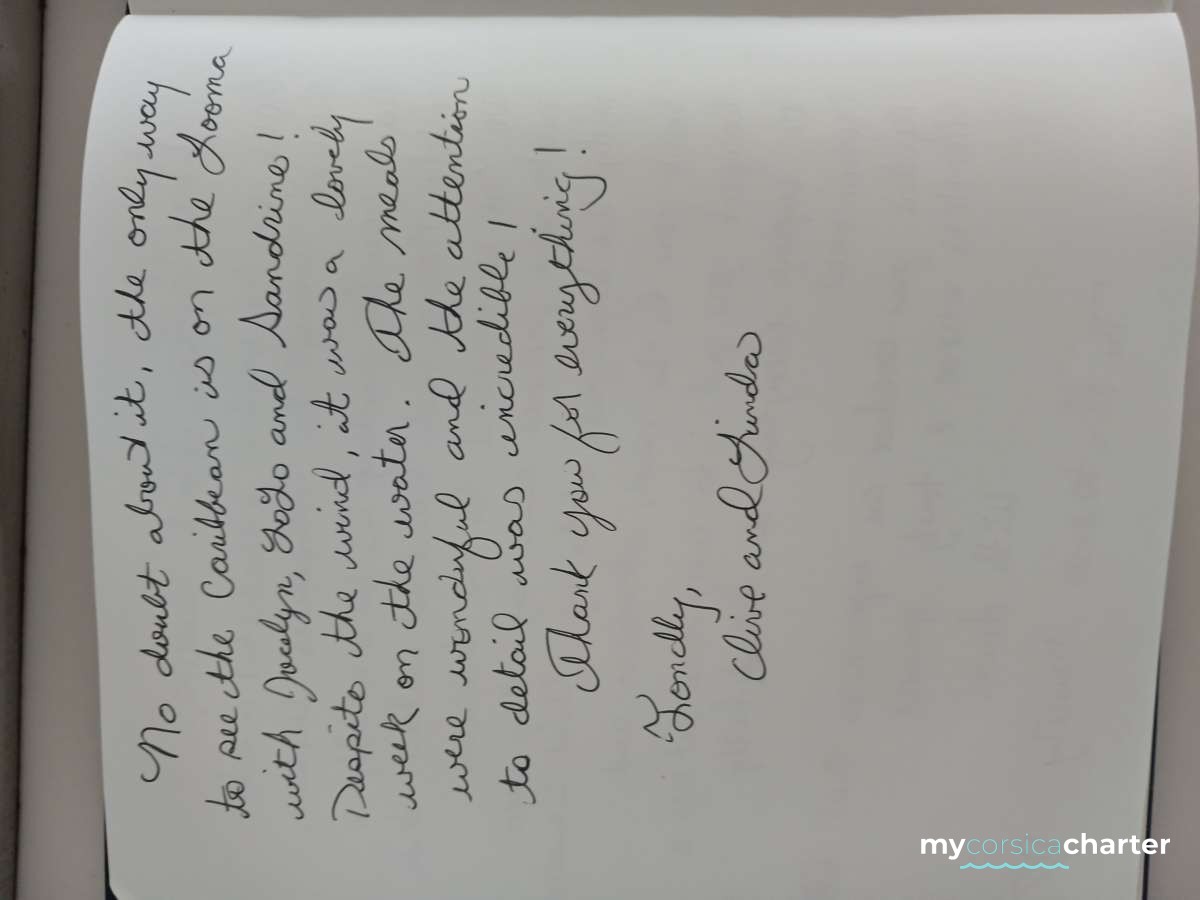 No doubt about it, the only way
to see the Caribbean is on the Looma
with Jocelyn, YoYo and Sandrine!
Despite the wind, it was a lovely
week on the water. The meals
were wonderful and the attention
to detail was incredible!
Thank you for everything!
Fondly,
Clive and Linda
mycorsicacharter